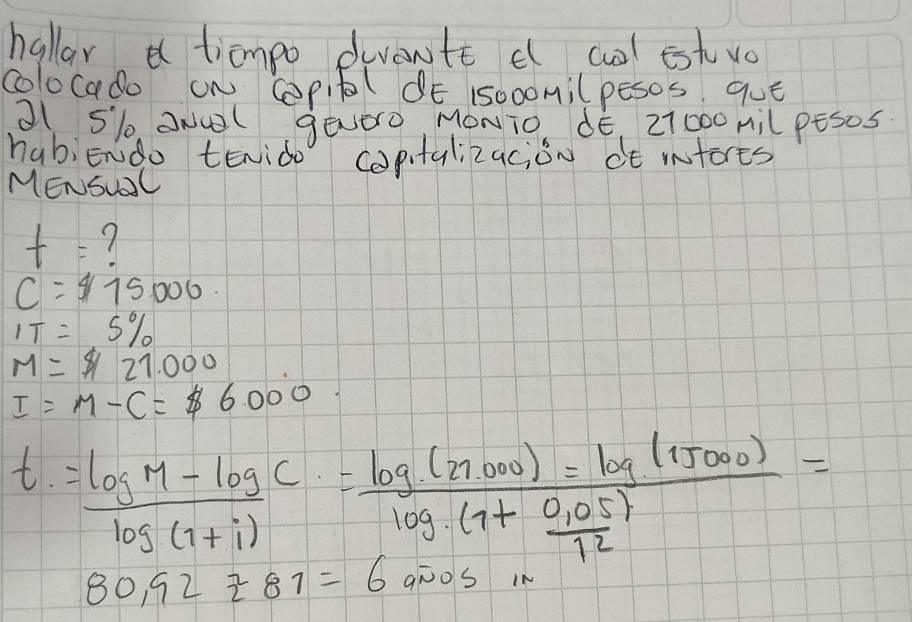 hallar el tiempo durante el cual estuvo
colocado un capital de 15000 mil pesos. que
al 5% anual genero monto de 21000 mil pesos.
habiendo tenido capitalización de interes
mensual
t = ?
C = $ 15.000.
IT = 5%
M = $ 21.000
I = M - C = $ 6.000.
t. = log M - log C. = log.(21.000) = log.(15000) =
log.(1+i) log.(1+ 0,05)
12
80,92 ≅ 81 = 6 años in